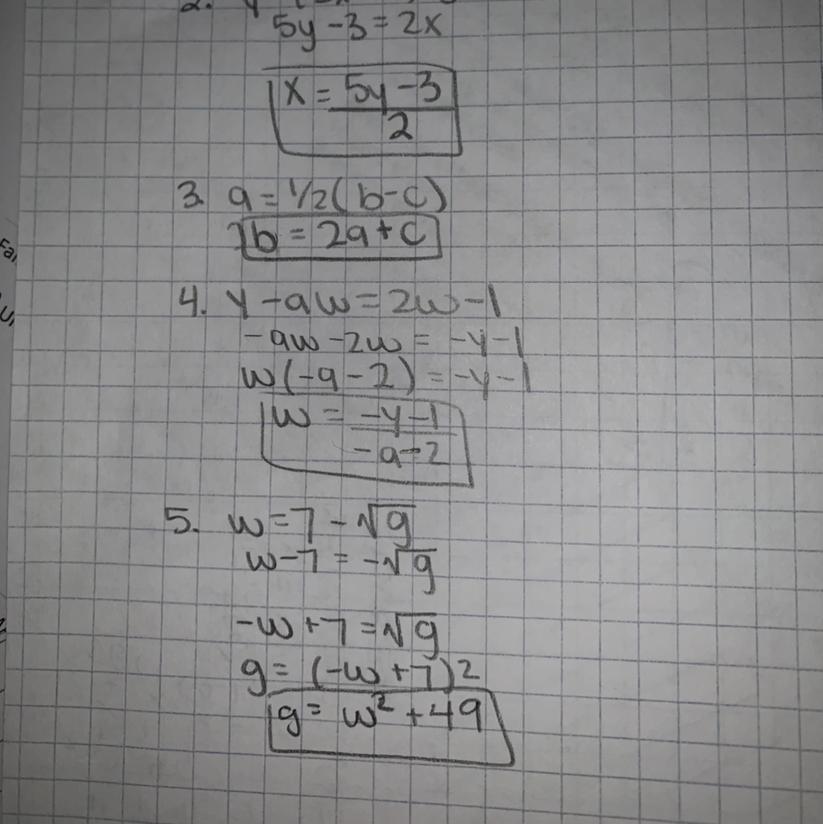 2.
5y - 3 = 2x
x = 5y - 3
2
3. a = 1/2 (b - c)
b = 2a + c
4. y - aw = 2w - 1
-aw - 2w = -y - 1
w(-a - 2) = -y - 1
w = -y - 1
-a - 2
5. w = 7 - √g
w - 7 = -√g
-w + 7 = √g
g = (-w + 7)2
g = w² + 49